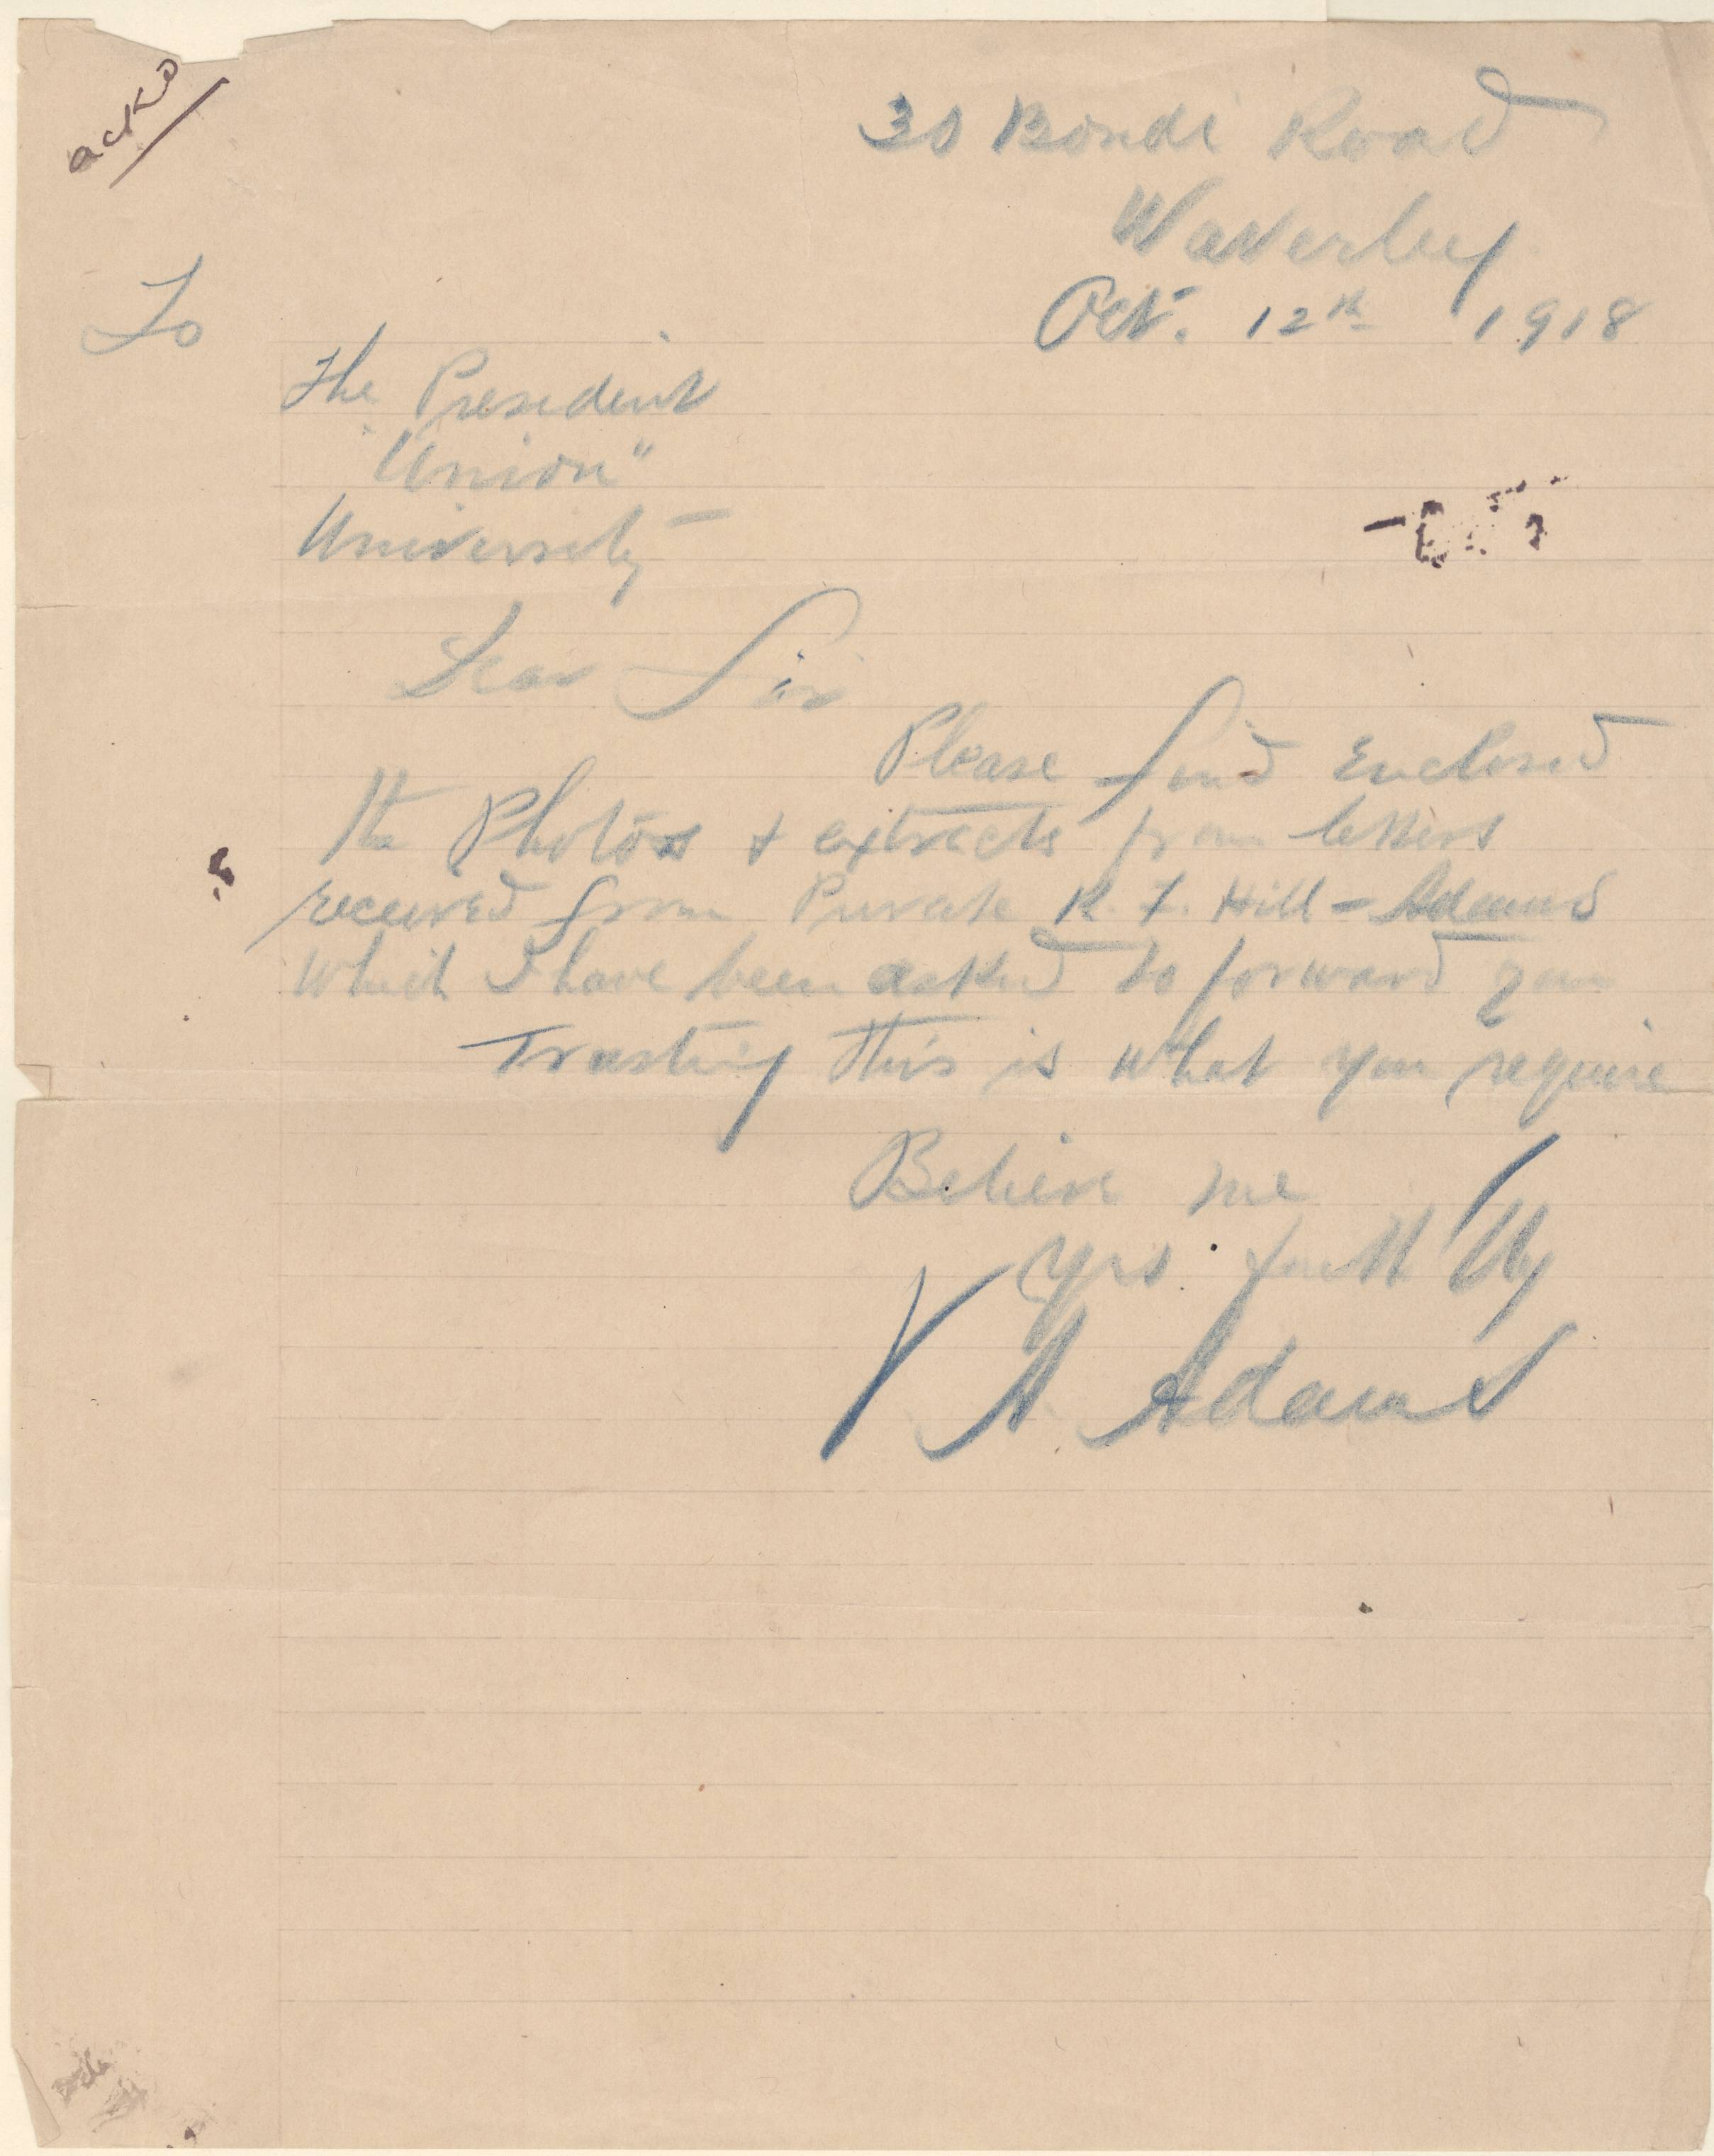 ackd
30 Bondi Road
Waverley
Oct. 12th 1918
To
The President
"Union"
University
Dear Sir
Please find Enclosed
the Photos & extracts from letters
received from Private K. F. Hill-Adams
which I have been asked to forward you
Trusting this is what you require
Believe me
Yrs faithfully
V A Adams